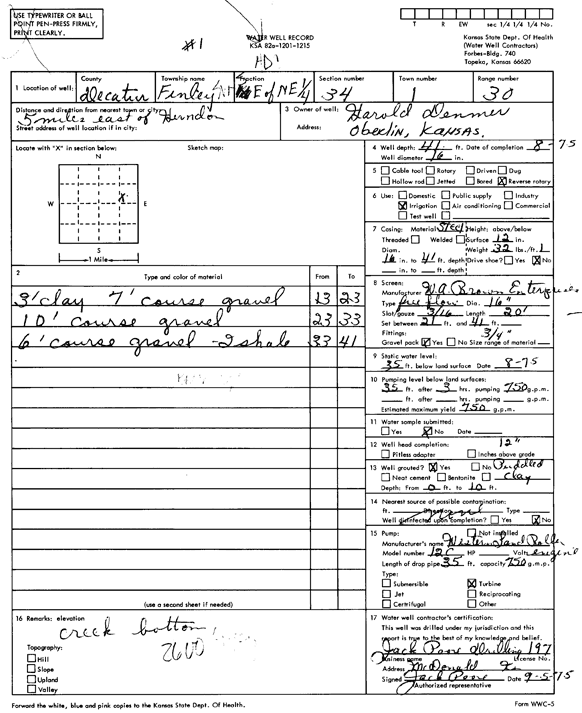 USE TYPEWRITER OR BALL
POINT PEN-PRESS FIRMLY,
PRINT CLEARLY.
#1
WATER WELL RECORD
KSA 82a-1201-1215
T R EW sec 1/4 1/4 1/4 No.
Kansas State Dept. Of Health
(Water Well Contractors)
Forbes-Bldg. 740
Topeka, Kansas 66620
1 Location of well: County Decatur Township name Finley Fraction NE of NE 1/4 Section number 34 Town number 1 Range number 30
Distance and direction from nearest town or city: 5 miles east of Herndon
Street address of well location if in city:
3 Owner of well: Harold Demmer
Address: Oberlin, Kansas.
Locate with "X" in section below:
Sketch map:
N
W X E
S
1 Mile
4 Well depth: 41 ft. Date of completion 8-75
Well diameter 16 in.
5 Cable tool Rotary Driven Dug
Hollow rod Jetted Bored X Reverse rotary
6 Use: Domestic Public supply Industry
X Irrigation Air conditioning Commercial
Test well
7 Casing: Material Steel Height: above/below
Threaded Welded Surface 12 in.
Diam. Weight 32 lbs./ft.
16 in. to 41 ft. depth Drive shoe? Yes X No
in. to ft. depth
2 Type and color of material From To
3' clay 7' course gravel 13 23
10' course gravel 23 33
6' course gravel - 2 shale 33 41
8 Screen:
Manufacturer W.A. Brown Enterprises
Type free flow Dia. 16"
Slot/gauze 3/16 Length 20'
Set between 21 ft. and 41 ft.
Fittings: 3/4"
Gravel pack X Yes No Size range of material
9 Static water level:
35 ft. below land surface Date 8-75
10 Pumping level below land surfaces:
35 ft. after hrs. pumping 750 g.p.m.
ft. after hrs. pumping g.p.m.
Estimated maximum yield 750 g.p.m.
11 Water sample submitted:
Yes X No Date
12 Well head completion: 12"
Pitless adapter Inches above grade
13 Well grouted? X Yes No Puddled
Neat cement Bentonite clay
Depth: From 0 ft. to 10 ft.
14 Nearest source of possible contamination:
ft. Type
Well disinfected upon completion? Yes X No
15 Pump: Not installed
Manufacturer's name Western Land Roller
Model number 12C HP Volts engine
Length of drop pipe 35 ft. capacity 750 g.m.p.
Type:
Submersible X Turbine
Jet Reciprocating
Certifugal Other
(use a second sheet if needed)
16 Remarks: elevation
creek bottom
2600
Topography:
Hill
Slope
Upland
Valley
17 Water well contractor's certification:
This well was drilled under my jurisdiction and this
report is true to the best of my knowledge and belief.
Jack Poore Drilling 197
Business name License No.
Address McDonald Ks
Signed Jack Poore Date 9-5-75
Authorized representative
Forward the white, blue and pink copies to the Kansas State Dept. Of Health.
Form WWC-5